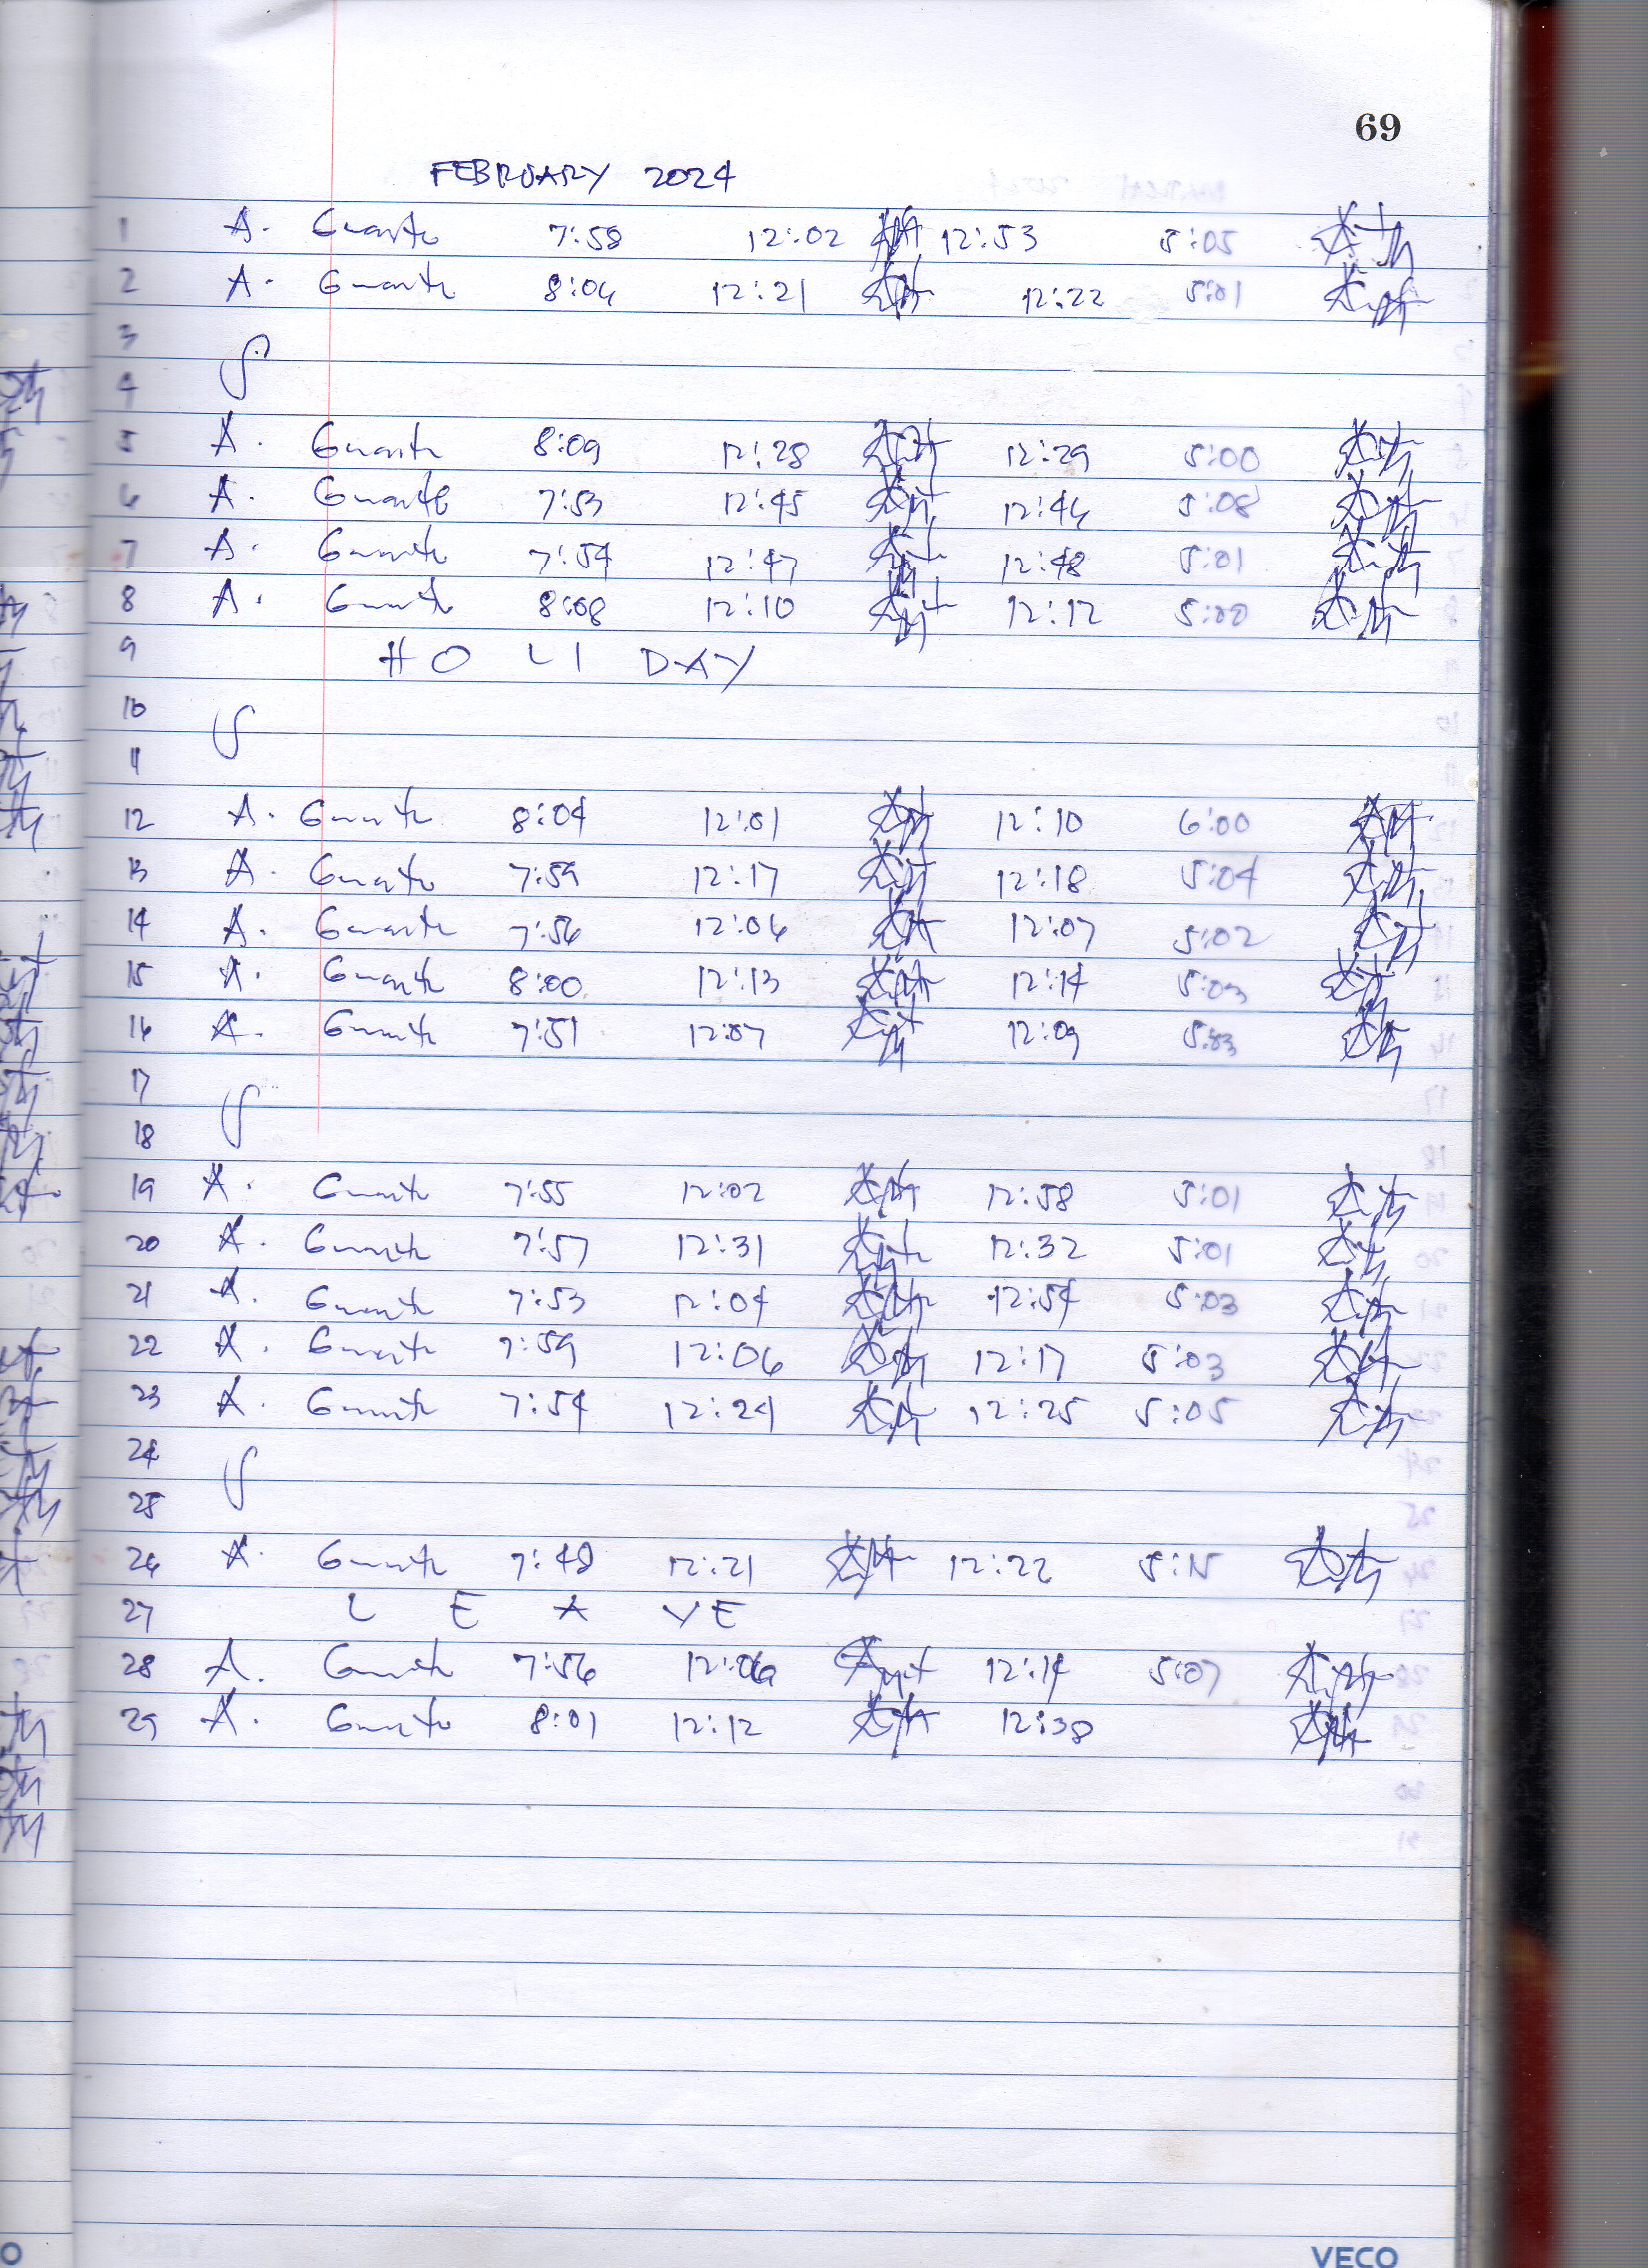 69
FEBRUARY 2024
1 A. Guarte 7:58 12:02 12:53 5:05
2 A. Guarte 8:04 12:21 12:22 5:01
3
4
5 A. Guarte 8:09 12:28 12:29 5:00
6 A. Guarte 7:53 12:45 12:46 5:08
7 A. Guarte 7:54 12:47 12:48 5:01
8 A. Guarte 8:08 12:10 12:12 5:00
9 HOLIDAY
10
11
12 A. Guarte 8:04 12:01 12:10 6:00
13 A. Guarte 7:59 12:17 12:18 5:04
14 A. Guarte 7:56 12:06 12:07 5:02
15 A. Guarte 8:00 12:13 12:14 5:03
16 A. Guarte 7:51 12:07 12:09
17
18
19 A. Guarte 7:55 12:02 12:58 5:01
20 A. Guarte 7:57 12:31 12:32 5:01
21 A. Guarte 7:53 12:04 12:54 5:03
22 A. Guarte 7:59 12:06 12:17 5:03
23 A. Guarte 7:54 12:24 12:25 5:05
24
25
26 A. Guarte 7:48 12:21 12:22 5:15
27 LEAVE
28 A. Guarte 7:56 12:06 12:14 5:07
29 A. Guarte 8:01 12:12 12:38
VECO